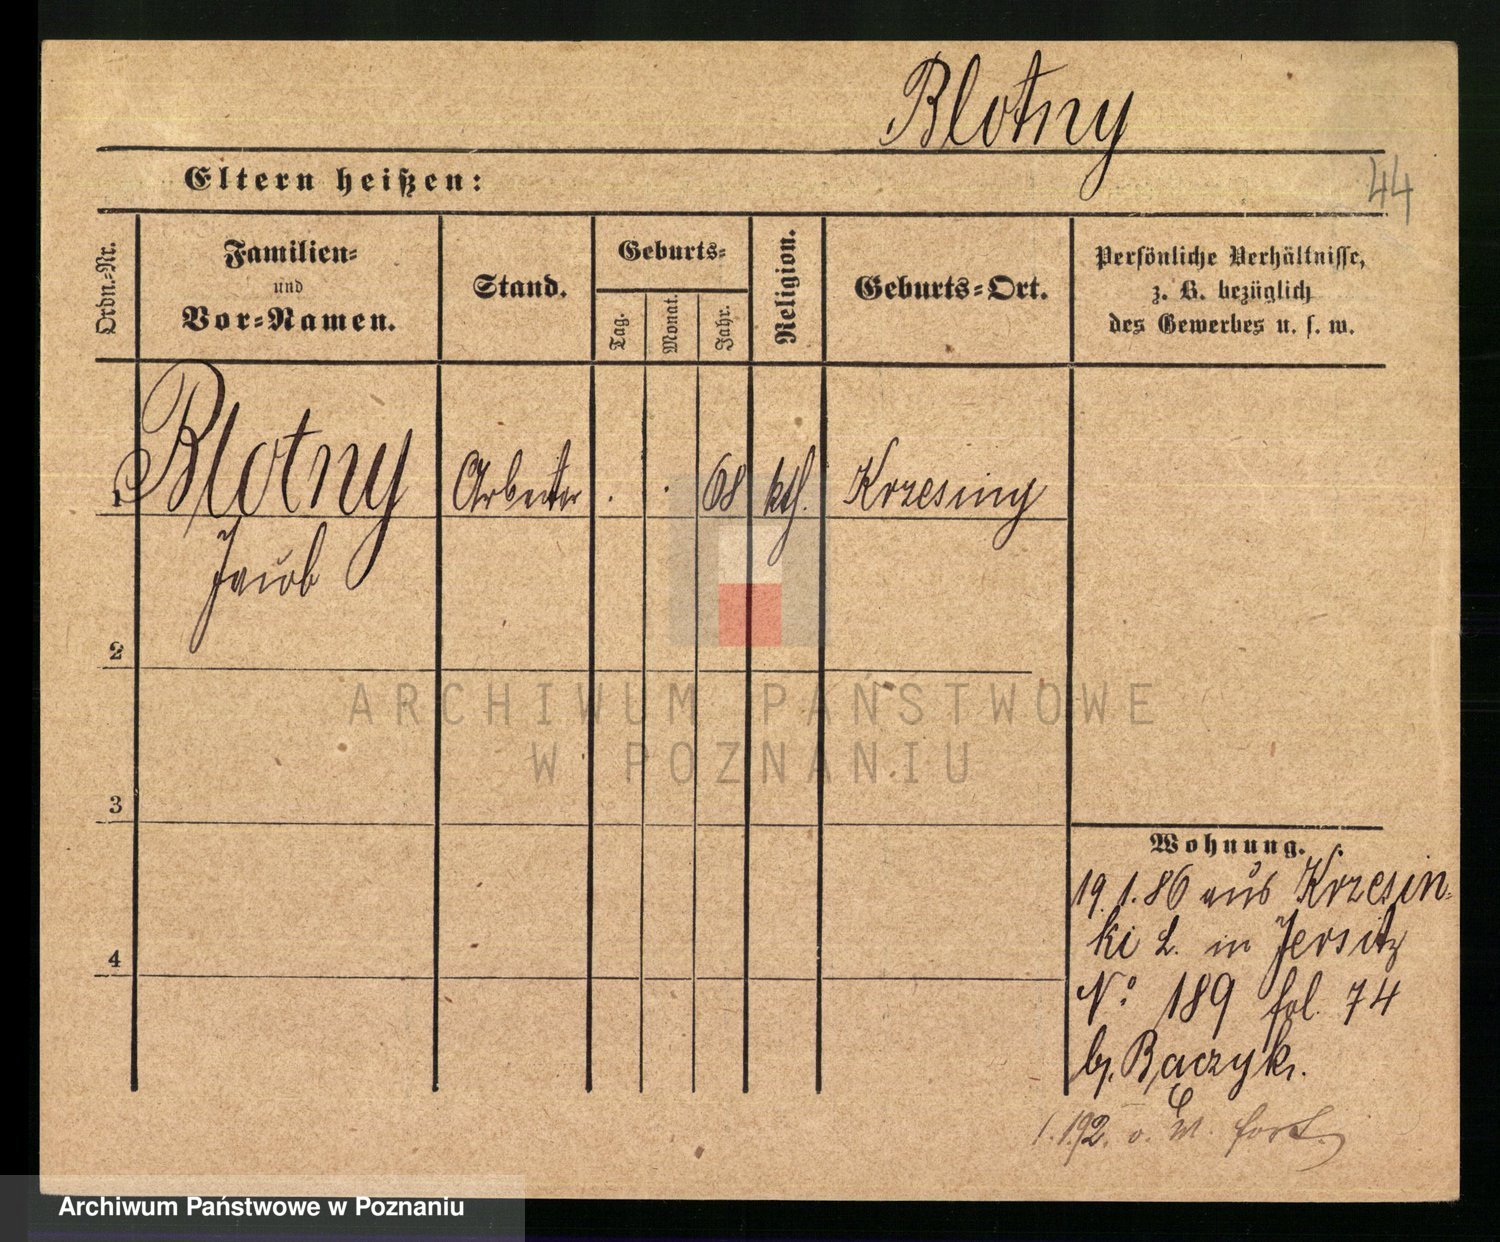 Blotny
Eltern heißen:
44
Ordn.-Nr.
Familien-
und
Vor-Namen.
Stand.
Geburts-
Tag.
Monat.
Jahr.
Religion.
Geburts-Ort.
Persönliche Verhältnisse,
z. B. bezüglich
des Gewerbes u. s. w.
1 Blotny Arbeiter . . 68 kth. Krzesiny
Jacob
2
3
4
Wohnung.
19.1.86 aus Krzesin-
ki L. in Jersitz
No. 189 fol. 74
bj. Baczyk.
1.1.92. o. W. fort.
ARCHIWUM PAŃSTWOWE
W POZNANIU
Archiwum Państwowe w Poznaniu